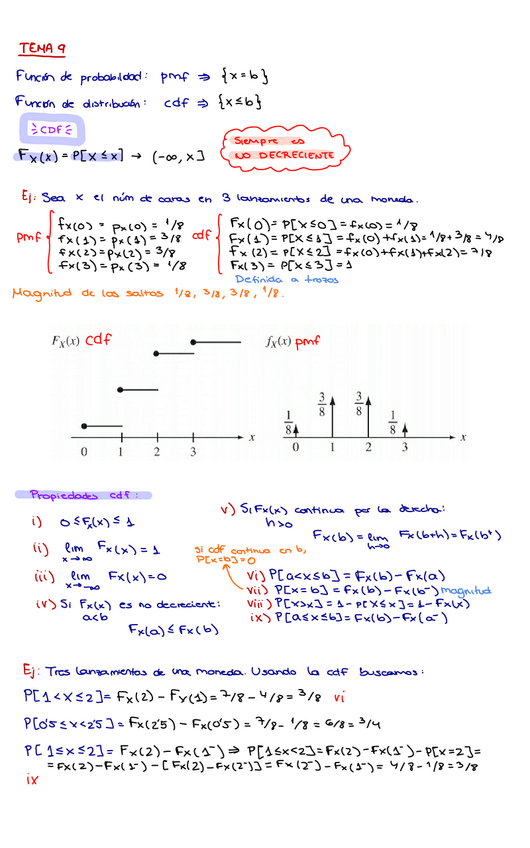 TEMA 9
Función de probabilidad: pmf ⇒ {x=b}
Función de distribución: cdf ⇒ {x≤b}
CDF
Fx(x) = P[X ≤ x] → (-∞, x]
Siempre es
NO DECRECIENTE
Ej: Sea x el núm de caras en 3 lanzamientos de una moneda.
pmf
fx(0) = px(0) = 1/8
fx(1) = px(1) = 3/8
fx(2) = px(2) = 3/8
fx(3) = px(3) = 1/8
cdf
Fx(0) = P[X≤0] = fx(0) = 1/8
Fx(1) = P[X≤1] = fx(0)+fx(1) = 1/8+3/8 = 4/8
fx(2) = P[X≤2] = fx(0)+fx(1)+fx(2) = 7/8
Fx(3) = P[X≤3] = 1
Definida a trozos
Magnitud de los saltos 1/8, 3/8, 3/8, 1/8.
FX(x) cdf
0 1 2 3 x
fX(x) pmf
1/8 3/8 3/8 1/8
0 1 2 3 x
Propiedades cdf:
i) 0 ≤ Fx(x) ≤ 1
(ii) lim x→∞ Fx(x) = 1
iii) lim x→-∞ Fx(x) = 0
iv) Si Fx(x) es no decreciente:
a<b
Fx(a) ≤ Fx(b)
v) Si Fx(x) continua por la derecha:
h>0
Fx(b) = lim h→0 Fx(b+h) = Fx(b⁺)
Si cdf continua en b,
P[X=b]=0
vi) P[a<x≤b] = Fx(b) - Fx(a)
vii) P[X=b] = Fx(b) - Fx(b⁻) magnitud
viii) P[X>x] = 1 - P[X≤x] = 1 - Fx(x)
ix) P[a≤x≤b] = Fx(b) - Fx(a⁻)
Ej: Tres lanzamientos de una moneda. Usando la cdf buscamos:
P[1<x≤2] = Fx(2) - Fx(1) = 7/8 - 4/8 = 3/8 vi
P[0'5≤x<2'5] = Fx(2'5) - Fx(0'5) = 7/8 - 1/8 = 6/8 = 3/4
P[1≤x≤2] = Fx(2) - Fx(1⁻) ⇒ P[1≤x<2] = Fx(2) - Fx(1⁻) - P[x=2] =
= Fx(2) - Fx(1⁻) - [Fx(2) - Fx(2⁻)] = Fx(2⁻) - Fx(1⁻) = 4/8 - 1/8 = 3/8
ix